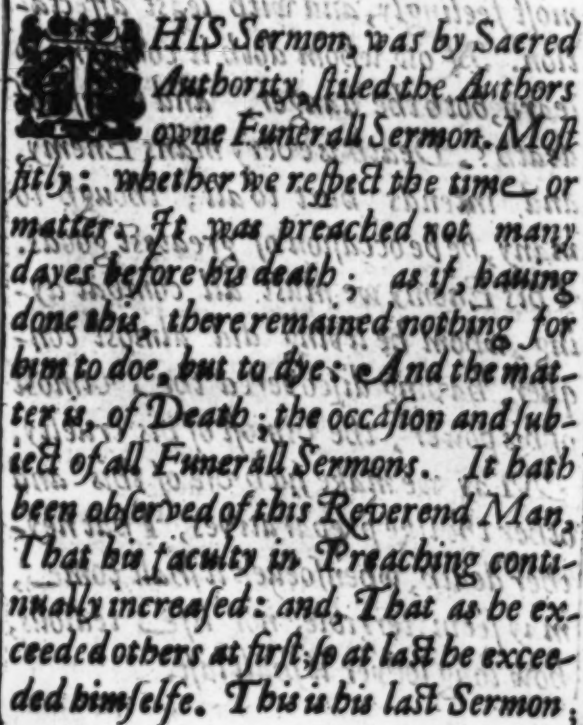 THIS Sermon, was by Sacred
Authority, ſtiled the Authors
owne Funerall Sermon. Moſt
fitly: whether we reſpect the time or
matter. It was preached not many
dayes before his death; as if, hauing
done this, there remained nothing for
him to doe, but to dye: And the mat-
ter is, of Death; the occaſion and ſub-
iect of all Funerall Sermons. It hath
been obſerved of this Reverend Man,
That his faculty in Preaching conti-
nually increaſed: and, That as he ex-
ceeded others at firſt; ſo at laſt he excee-
ded himſelfe. This is his laſt Sermon;